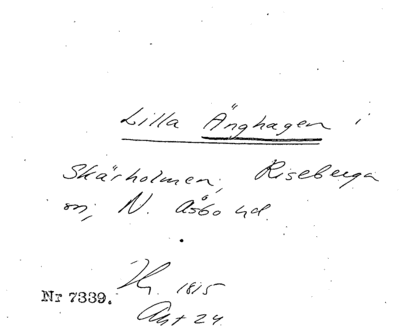 Lilla Änghagen i
Skärholmen, Riseberga
sn, N. Åsbo hd.
1815
Nr 7339.
Akt 24